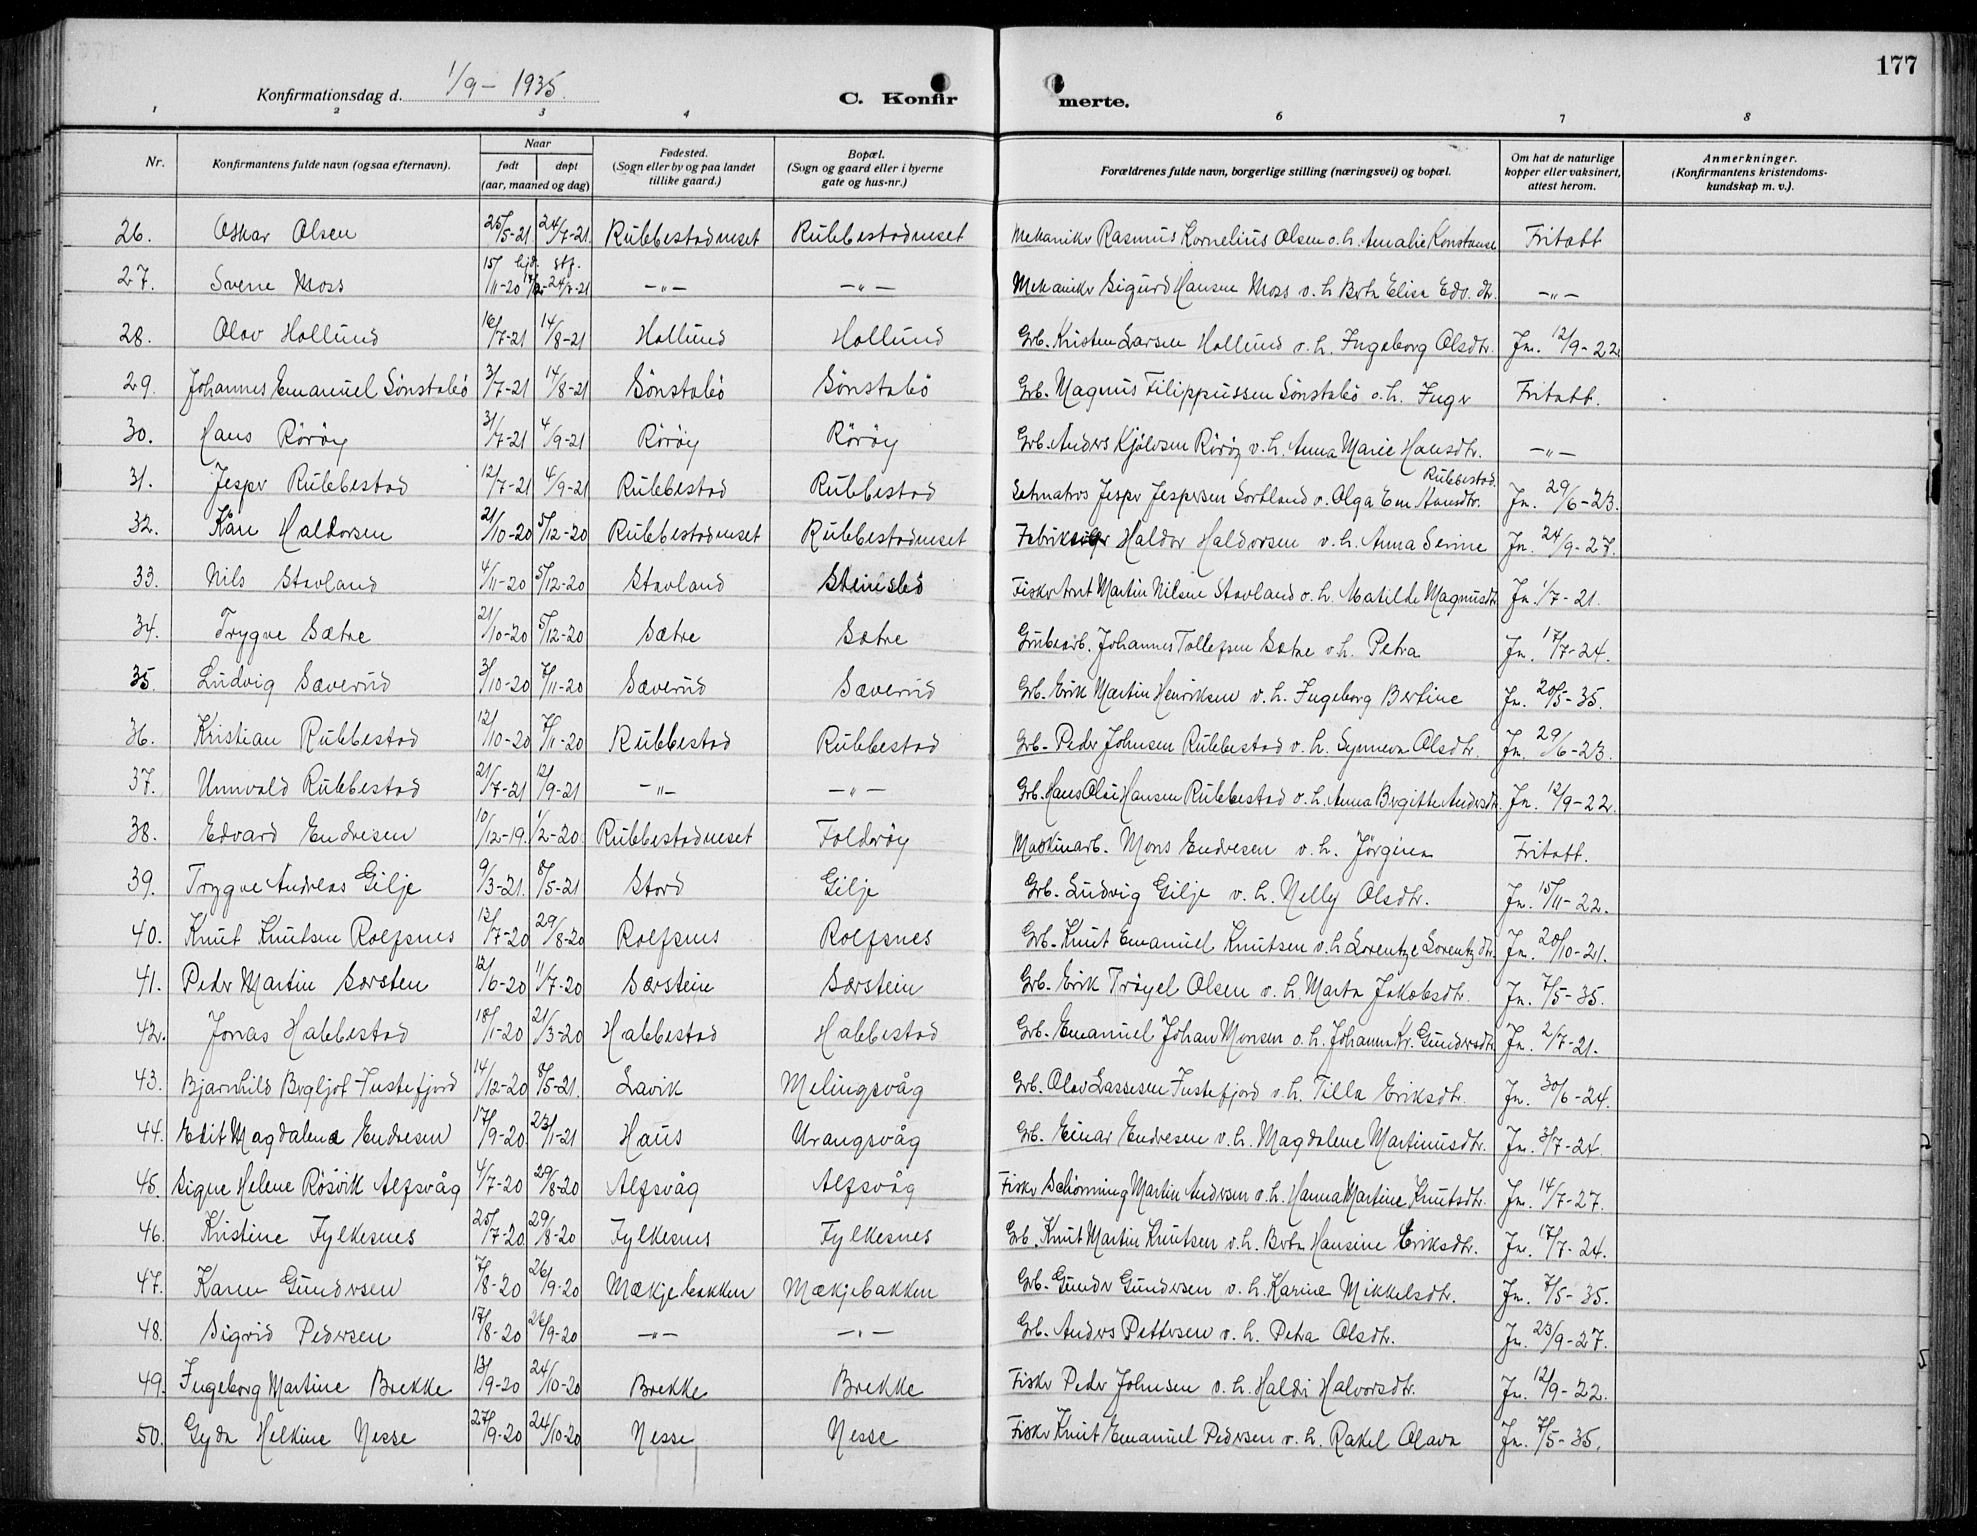 177
Konfirmationsdag d. 1/9 - 1935.
C. Konfir merte.
1 2 3 4 6 7 8
Nr. Konfirmantens fulde navn (ogsaa efternavn). Naar født døpt (aar, maaned og dag) Fødested. (Sogn eller by og paa landet tillike gaard.) Bopæl. (Sogn og gaard eller i byerne gate og hus-nr.) Forældrenes fulde navn, borgerlige stilling (næringsvei) og bopæl. Om hat de naturlige kopper eller vaksinert, attest herom. Anmerkninger. (Konfirmantens kristendoms-kundskap m. v.).
26. Oskar Olsen 25/5-21 24/7-21 Rubbestadneset Rubbestadneset Mekaniker Rasmus Kornelius Olsen o. h. Amalie Konstanse Fritatt
27. Sverre Moss 15/11-20 hjd. 24/7-21 -"- -"- Mekaniker Sigurd Hansen Moss o. h. Berta Elise Edv. dtr. -"-
28. Olav Hollund 16/7-21 14/8-21 Hollund Hollund Grb. Kristen Larsen Hollund o. h. Ingeborg Olsdtr. Ja. 12/9-22
29. Johannes Emanuel Sønstabø 3/7-21 14/8-21 Sønstabø Sønstabø Grb. Magnus Filippussen Sønstabø o. h. Inger Fritatt.
30. Hans Röröy 31/7-21 4/9-21 Röröy Röröy Grb. Anders Kjølvsen Röröy o. h. Anna Marie Hansdtr. -"-
31. Jesper Rubbestad 12/7-21 4/9-21 Rubbestad Rubbestad Jesper Jespersen Sortland o. Olga Em. Hansdtr. Rubbestad. Ja. 29/6-23.
32. Kåre Haldorsen 21/10-20 5/12-20 Rubbestadneset Rubbestadneset Haldor Haldorsen o. h. Anna Serine Ja. 24/9-27.
33. Nils Stavland 4/11-20 5/12-20 Stavland Steinsbö Fisker Arnt Martin Nilsen Stavland o. h. Matilde Magnusdtr. Ja. 1/7-21.
34. Trygve Sætre 21/10-20 5/12-20 Sætre Sætre Grubearb. Johannes Tollefsen Sætre o. h. Petra Ja. 17/7-24.
35. Ludvig Sæverud 3/10-20 7/11-20 Sæverud Sæverud Grb. Erik Martin Henriksen o. h. Ingeborg Bertine Ja. 20/5-35.
36. Kristian Rubbestad 12/10-20 7/11-20 Rubbestad Rubbestad Grb. Peder Johnsen Rubbestad o. h. Synneva Olsdtr. Ja. 29/6-23.
37. Unnvald Rubbestad 21/7-21 12/9-21 -"- -"- Grb. Hans Olai Hansen Rubbestad o. h. Anna Bergitte Andersdtr. Ja. 12/9-22.
38. Edvard Endresen 10/12-19. 1/2-20 Rubbestadneset Folderöy Maskinarb. Mons Endresen o. h. Jörgina Fritatt.
39. Trygve Andreas Gilje 9/3-21. 8/5-21 Stord Gilje Grb. Ludvig Gilje o. h. Nelly Olsdtr. Ja. 15/11-22.
40. Knut Knutsen Rolfsnes 13/7-20 29/8-20 Rolfsnes Rolfsnes Grb. Knut Emanuel Knutsen o. h. Lorentze Lorentzdtr. Ja. 20/10-21.
41. Peder Martin Særsten 12/6-20 11/7-20 Særstein Særstein Grb. Erik Tröyel Olsen o. h. Marta Jakobsdtr. Ja. 7/5-35.
42. Jonas Habbestad 18/1-20 21/3-20 Habbestad Habbestad Grb. Emanuel Johan Monsen o. h. Johanna Kr. Gundersdtr. Ja. 2/7-21.
43. Bjarnhild Bergljot Tustefjord 14/12-20 8/5-21. Lavik Melingsvåg Grb. Olav Lassesen Tustefjord o. h. Tilla Eriksdtr. Ja. 30/6-24.
44. Edit Magdalena Endresen 17/9-20 23/1-21 Haus Urangsvåg Grb. Einar Endresen o. h. Magdalene Martinusdtr. Ja. 3/7-24.
45. Signe Helene Rösvik Alfsvåg 4/7-20 29/8-20 Alfsvåg Alfsvåg Fisker Schönning Martin Andersen o. h. Hanna Martine Knutsdtr. Ja. 14/7-27.
46. Kristine Fylkesnes 25/7-20 29/8-20 Fylkesnes Fylkesnes Grb. Knut Martin Knutsen o. h. Berta Hansine Eriksdtr. Ja. 17/7-24.
47. Karen Gundersen 7/8-20 26/9-20 Mækjebakken Mækjebakken Grb. Gunder Gundersen o. h. Karine Mikkelsdtr. Ja. 7/5-35.
48. Sigrid Pedersen 17/8-20 26/9-20 -"- -"- Grb. Anders Pettersen o. h. Petra Olsdtr. Ja. 23/9-27.
49. Ingeborg Martine Brekke 13/9-20 24/10-20 Brekke Brekke Fisker Peder Johnsen o. h. Haldri Halvorsdtr. Ja. 12/9-22.
50. Gyda Helkine Nesse 27/9-20 24/10-20 Nesse Nesse Fisker Knut Emanuel Pedersen o. h. Rakel Olava Ja. 7/5-35.